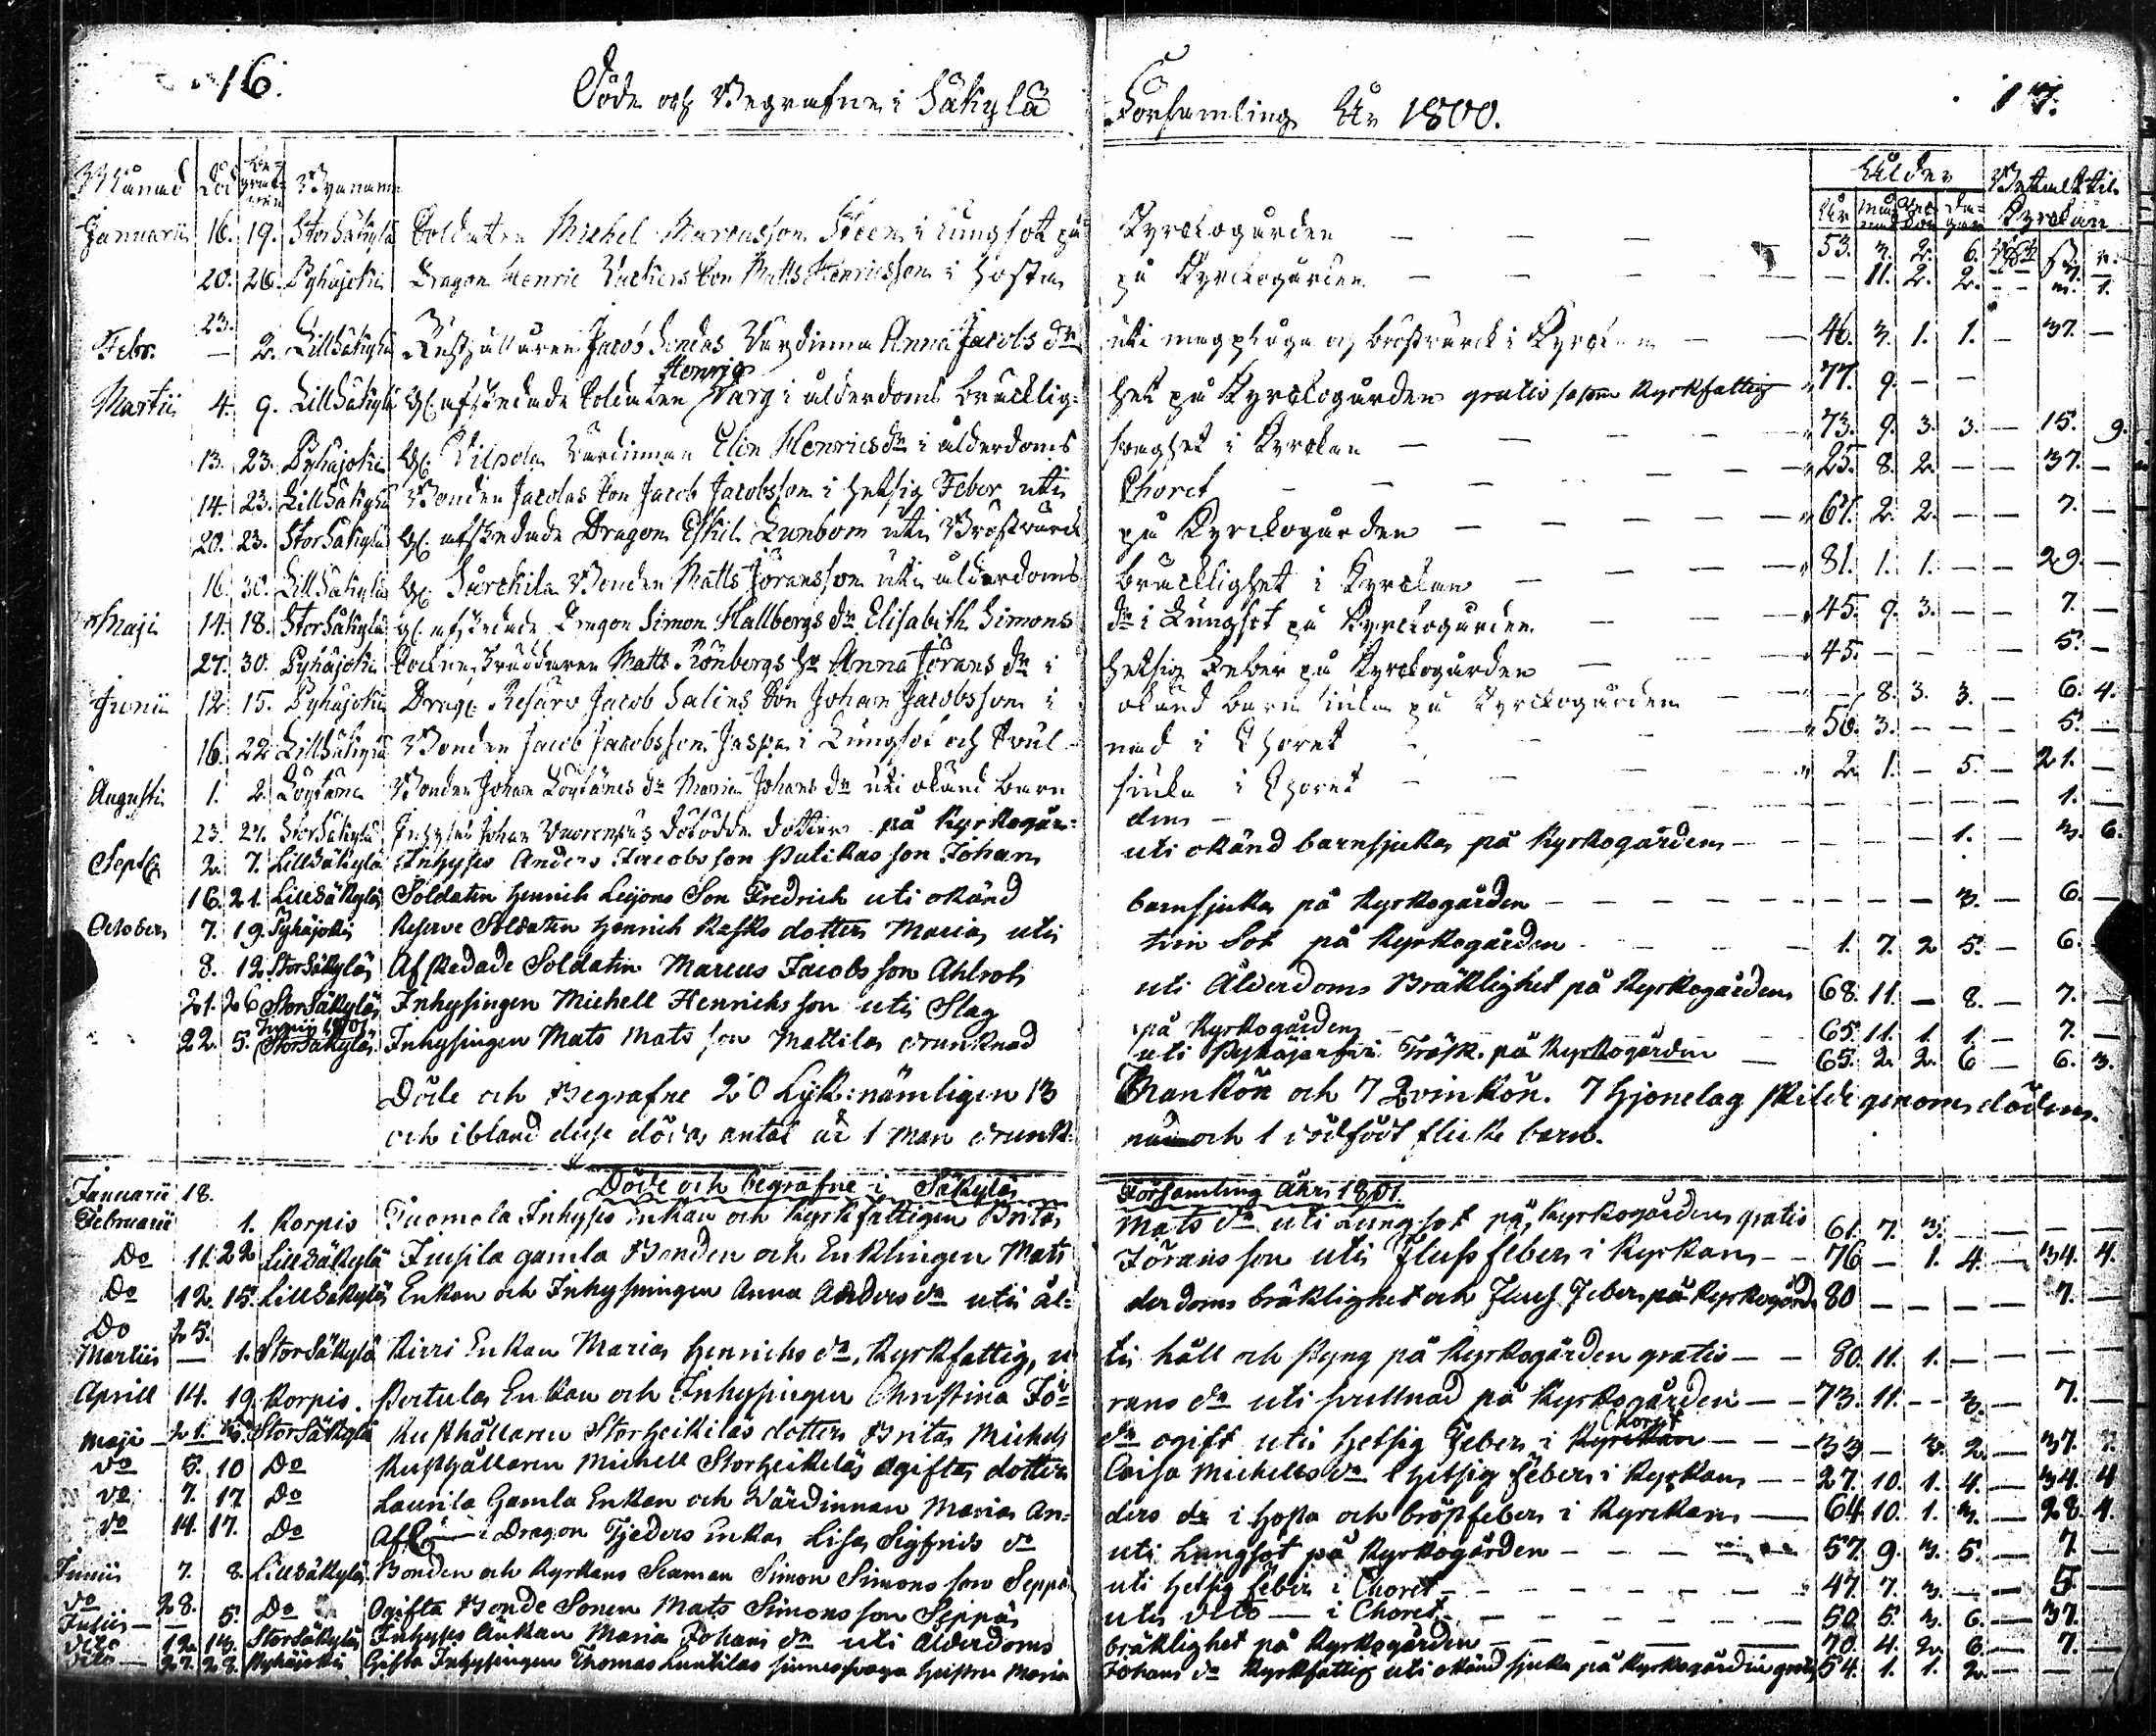 16.
Döde och Begrafne i Säkylä Församling År 1800.
17.
Månad Död Be-grafne Bynamn Ålder Betalt til Kyrckan
År Månad Veckor Dagar
Januarii 16. 19. StorSäkylä Soldaten Michel Marcusson Steen i Lungsot på Kyrckogården 53. 3. 2. 6.
20. 26. Pyhäjoki Dragon Henric Son Matts Henricsson i Hosta på Kyrckogården 11. 2. 2.
Febr. 23. 2. LillSäkylä Rusthållaren Jacob Värdinna Anna Jacobs dr uti magplåga och bröstvärck i Kyrckan 46. 3. 1. 1. 37.
Martii 4. 9. LillSäkylä afskedade Soldaten Henric Varg i ålderdoms bräcklighet på Kyrckogården gratis såsom Kyrkfattig 77. 9.
13. 23. Pyhäjoki Värdinnan Elin Henrics dr i ålderdoms svaghet i Kyrckan 73. 9. 3. 3. 15. 9.
14. 23. LillSäkylä Bonden Jacolas Son Jacob Jacobsson i hetsig Feber uti Choret 25. 8. 2. 37.
20. 23. StorSäkylä afskedade Dragon Eskil Lunbom uti Bröstvärck på Kyrckogården 67. 2. 2. 7.
16. 30. LillSäkylä Bonden Matts Jöransson uti ålderdoms bräcklighet i Kyrckan 81. 1. 1. 29.
Maji 14. 18. StorSäkylä afskedade Dragon Simon Hallbergs dr Elisabeth Simons dr i Lungsot på Kyrckogården 45. 9. 3. 7.
27. 30. Pyhäjoki Sockne Skräddaren Matts Rönbergs Hu Anna Jörans dr i hetsig Feber på Kyrckogården 45. 5.
Junii 12. 15. Pyhäjoki Drag Reserv Jacob Salins Son Johan Jacobsson i okänd barn siuka på Kyrckogården 8. 3. 3. 6. 4.
16. 22. LillSäkylä Bonden Jacob Jacobsson Jaspa i Lungsot och Svulnad i Choret 50. 3. 5.
Augusti 1. 2. Löytäne Bonden Johan Löytänes dr Maria Johans dr uti okänd barn siuka i Choret 2. 1. 5. 21.
23. 24. StorSäkylä Inhyses Johan dödfödde dotter på Kyrkogården 1.
Sept 2. 7. LillSäkylä Inhyses Anders Jacobsson Putikas son Johan uti okänd barnsjuka på Kyrkogården 1. 3. 6.
16. 21. LillSäkylä Soldaten Henrich Leijons Son Fredrich uti okänd barnsjuka på Kyrkogården 3. 6.
October 7. 19. Pyhäjoki Reserve Soldaten Henrich Rasks dotter Maria uti tvin Sot på Kyrkogården 1. 7. 2. 5. 6.
8. 12. StorSäkylä Afskedade Soldaten Marcus Jacobsson Ahlroth uti Ålderdoms Bräklighet på Kyrkogården 68. 11. 8. 7.
21. 26. StorSäkylä Inhysingen Michell Henrichsson uti Slag på Kyrkogården 65. 11. 1. 1. 7.
22. 5. Junii 1801 StorSäkylä Inhysingen Mats Matsson Mattila drunknad uti Pyhäjerfvi Träsk på Kyrkogården 65. 2. 2. 6. 6. 3.
Döde och Begrafne 20 Lijk: nämligen 13 Mankön och 7 Qvinkön. 7 hjonelag skilde genom döden.
och ibland desse döda antal är 1 Man drunknad och 1 dödfödt flicke barn.
Döde och begrafne i Säkylä Församling Åhr 1801.
Januarii 18.
Februarii 1. Korpis Tuomola Inhyses Enkan och Kyrkfattigen Brita Mats dr uti Lungsot på Kyrkogården gratis 61. 7. 3.
Do 11. 22. LillSäkylä Jusila gamla Bonden och Enklingen Mats Jöransson uti Flussfeber i Kyrkan 76. 1. 4. 34. 4.
Do 12. 15. LillSäkylä Enkan och Inhysningen Anna Anders dr uti ålderdoms bräklighet och Fluss Feber på Kyrkogård 80 7.
Do 25.
Martii 1. StorSäkylä Kirri Enkan Maria Henrichs dr, Kyrkfattig, uti håll och styng på Kyrkogården gratis 80. 11. 1.
Aprill 14. 19. Korpis. Pertula Enkan och Inhysingen Christina Jörans dr uti svullnad på Kyrkogården 73. 11. 3. 7.
Maji 21. StorSäkylä Rusthållaren Storheikiläs dotter Brita Michels dr ogift uti hetsig Feber i Kyrckan Choret 33. 3. 2. 37.
do 5. 10 Do Rusthållaren Michell Storheikiläs ogifta dotter Caisa Michells dr i hetsig feber i Kyrkan 27. 10. 1. 4. 34. 4
do 7. 17. Do Laurila Gamla Enkan och Värdinnan Maria Anders dr i hosta och bröstfeber i Kyrckan 64. 10. 1. 3. 28. 4.
do 14. 17. Do Dragon Tjeders Enka Lisa Sigfrids dr uti Lungsot på Kyrkogården 57. 9. 3. 5. 7.
Junii 7. 8. LillSäkylä Bonden och Kyrkans Sexman Simon Simonsson Seppä uti hetsig feber i Choret 47. 7. 3. 5
do 28.
Julii 5. Do Ogifta Bonde Sonen Mats Simonsson Seppä uti dito i Choret 50. 5. 3. 6. 37.
dito 12. 13. StorSäkylä Inhyses Änkan Maria Johans dr uti Ålderdoms bräklighet på Kyrkogården 70. 4. 2. 6. 7.
dito 27. 28. Pyhäjoki Gifta Inhysingen Thomas Luntilas sinnessvaga hustru Maria Johans dr Kyrkfattig uti okänd sjuka på Kyrkogården gratis 54. 1. 1. 2.